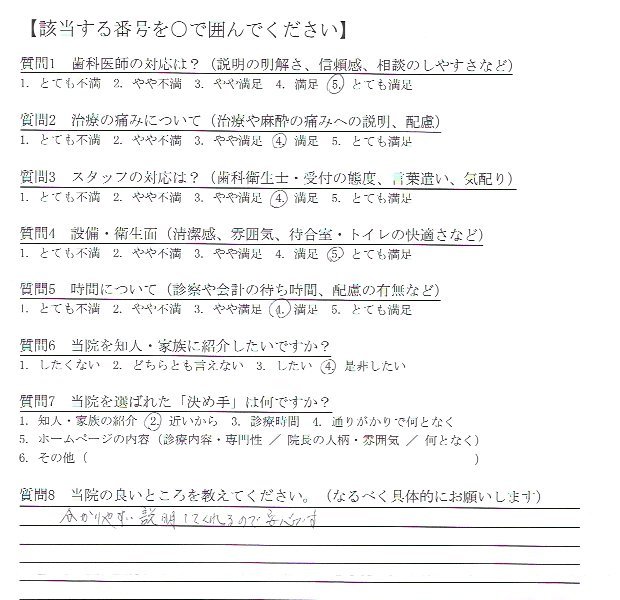 【該当する番号を〇で囲んでください】
質問1 歯科医師の対応は？（説明の明解さ、信頼感、相談のしやすさなど）
1. とても不満 2. やや不満 3. やや満足 4. 満足 5. とても満足
質問2 治療の痛みについて（治療や麻酔の痛みへの説明、配慮）
1. とても不満 2. やや不満 3. やや満足 4. 満足 5. とても満足
質問3 スタッフの対応は？（歯科衛生士・受付の態度、言葉遣い、気配り）
1. とても不満 2. やや不満 3. やや満足 4. 満足 5. とても満足
質問4 設備・衛生面（清潔感、雰囲気、待合室・トイレの快適さなど）
1. とても不満 2. やや不満 3. やや満足 4. 満足 5. とても満足
質問5 時間について（診察や会計の待ち時間、配慮の有無など）
1. とても不満 2. やや不満 3. やや満足 4. 満足 5. とても満足
質問6 当院を知人・家族に紹介したいですか？
1. したくない 2. どちらとも言えない 3. したい 4. 是非したい
質問7 当院を選ばれた「決め手」は何ですか？
1. 知人・家族の紹介 2. 近いから 3. 診療時間 4. 通りがかりで何となく
5. ホームページの内容（診療内容・専門性 ／ 院長の人柄・雰囲気 ／ 何となく）
6. その他（ ）
質問8 当院の良いところを教えてください。（なるべく具体的にお願いします）
分かりやすい説明してくれるので安心です